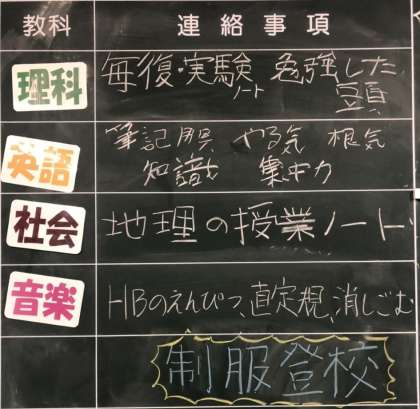 教科 連絡事項
理科 毎復・実験ノート 勉強した頭
英語 筆記用具 やる気 根気
知識 集中力
社会 地理の授業ノート
音楽 HBのえんぴつ、直定規、消しごむ
制服登校